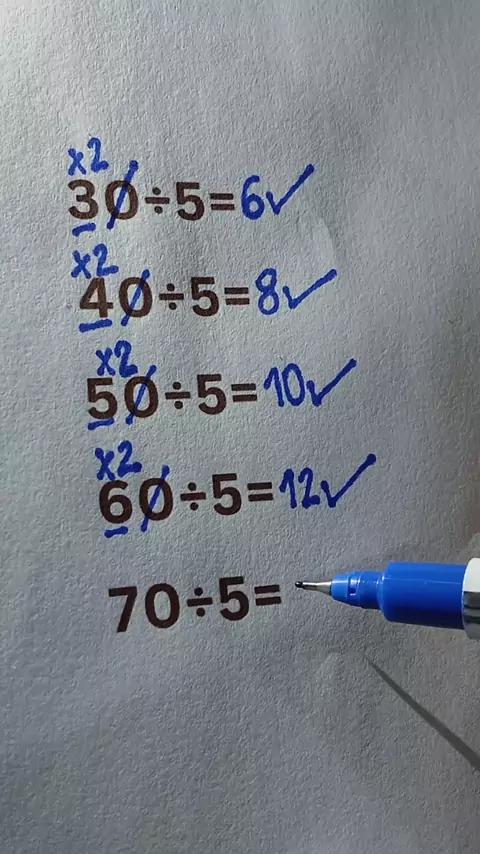 x2
30÷5=6✓
x2
40÷5=8✓
x2
50÷5=10✓
x2
60÷5=12✓
70÷5=